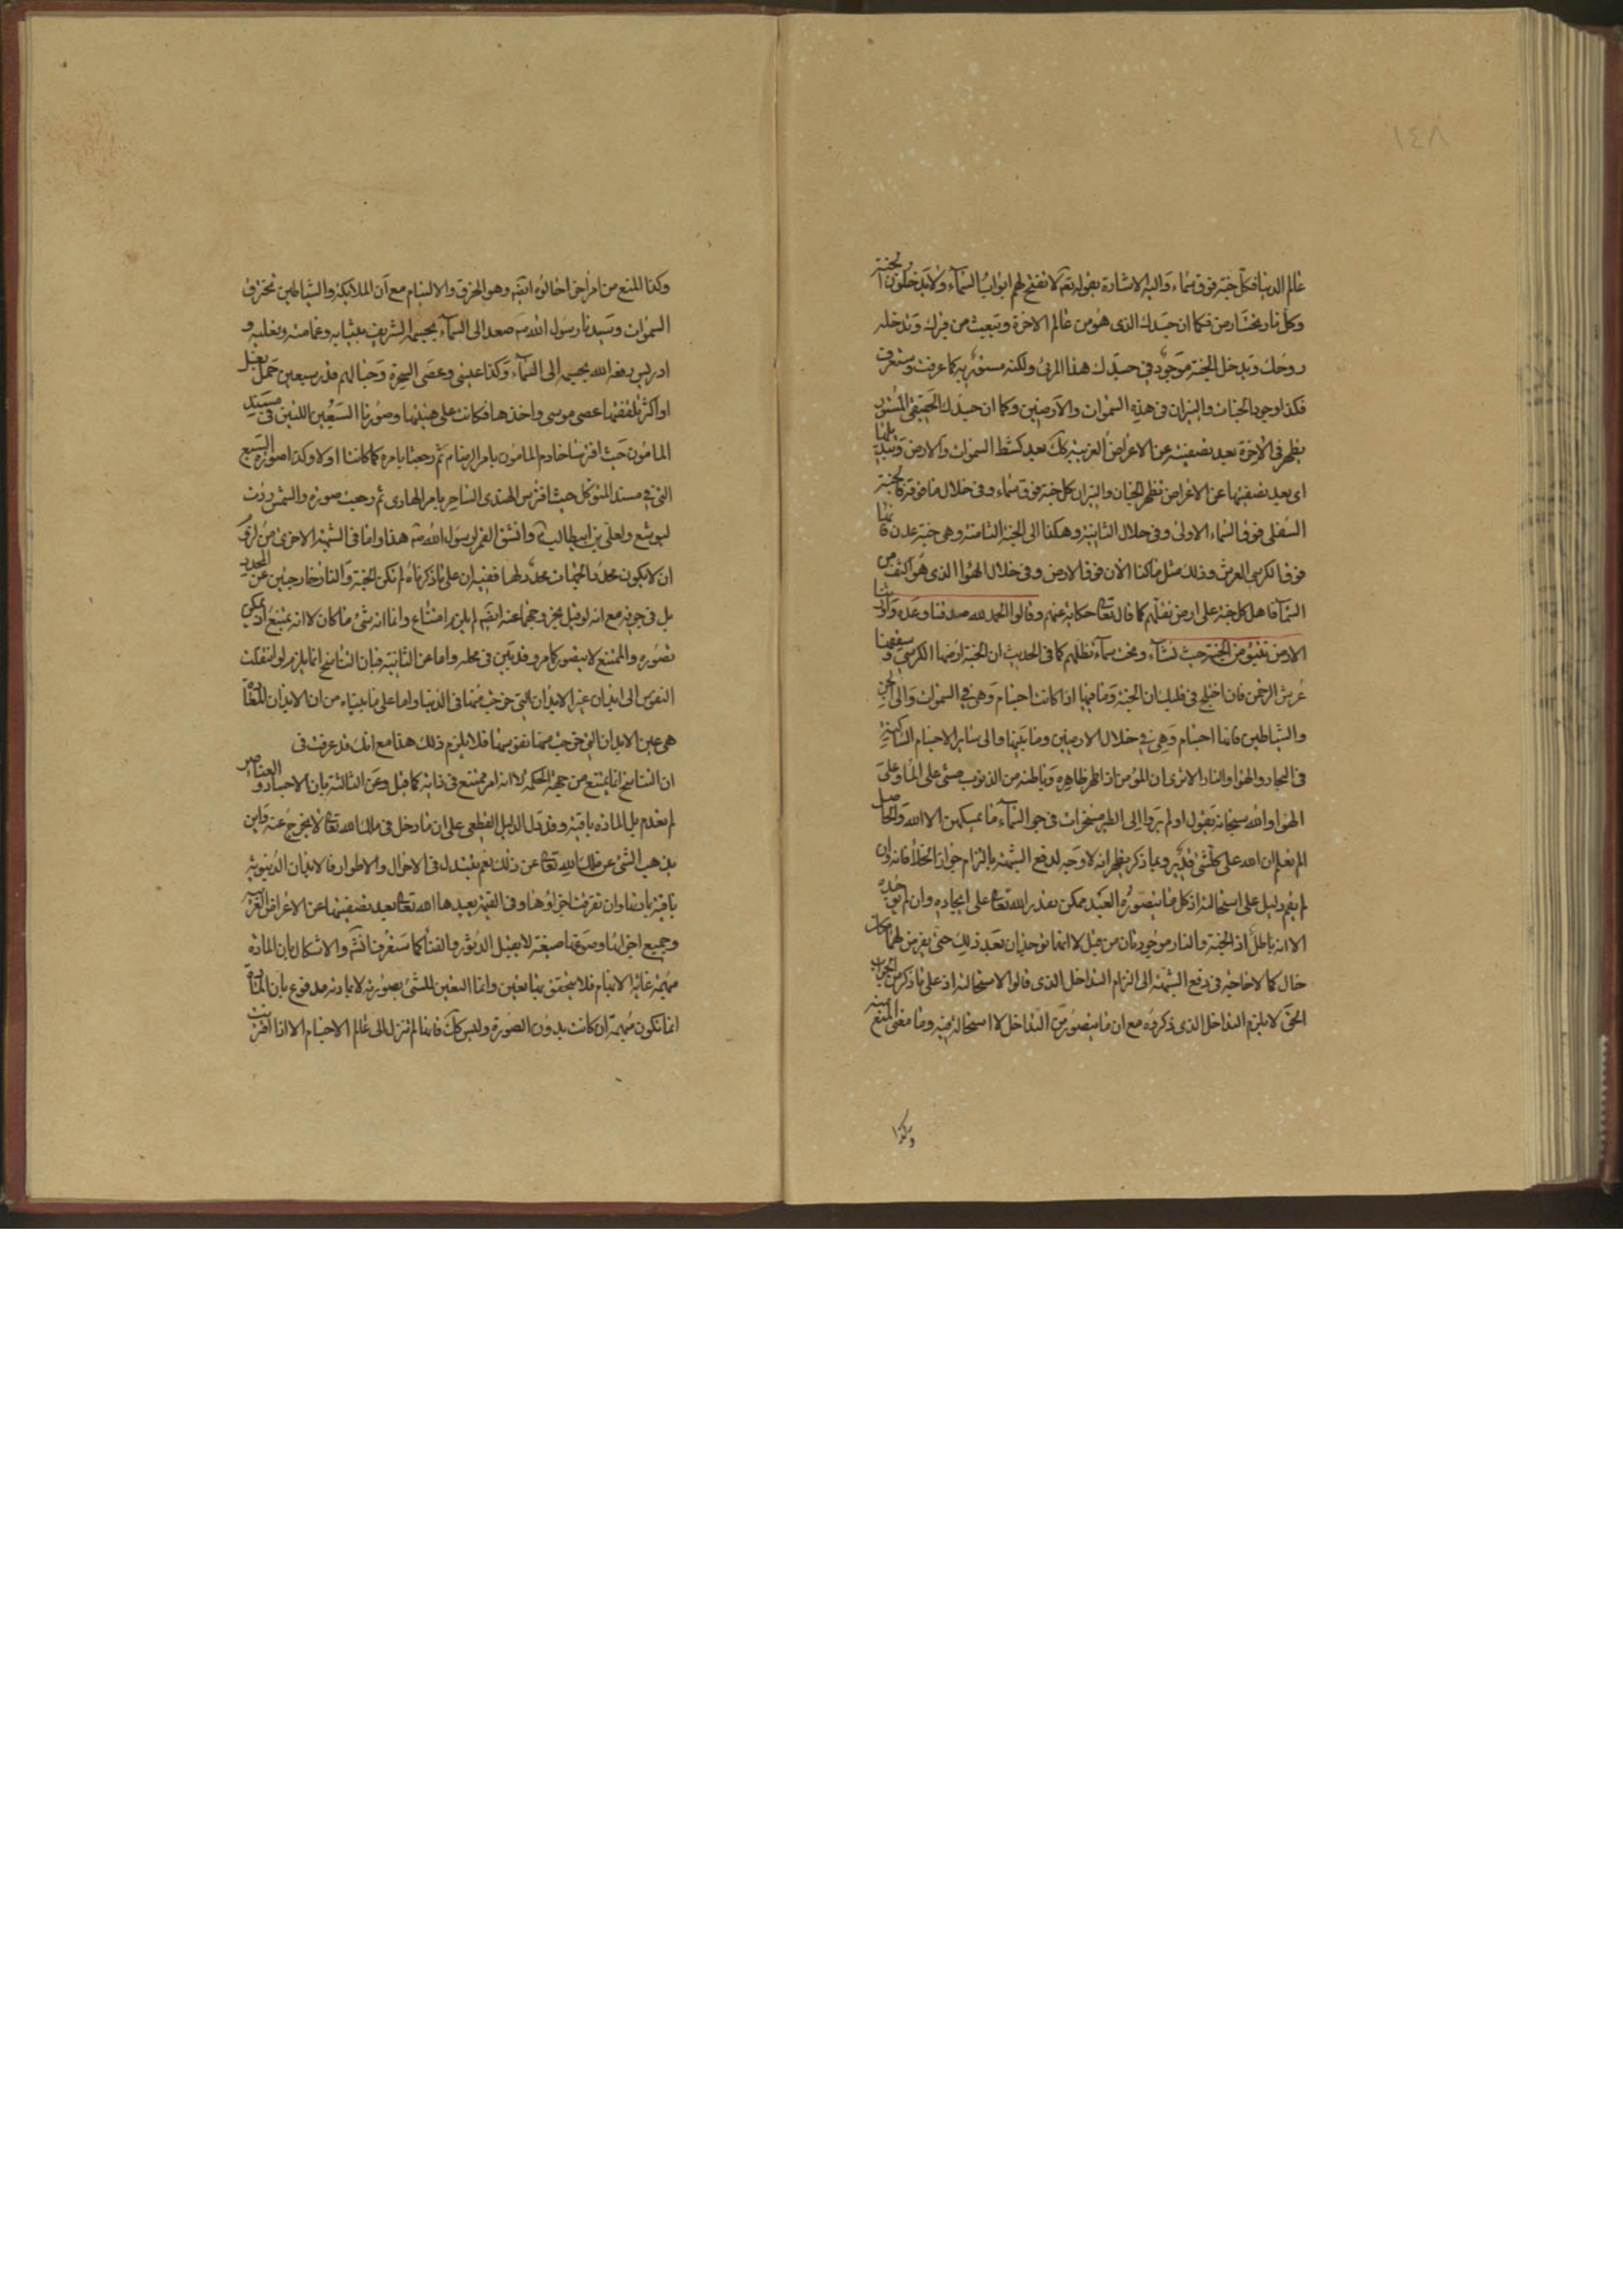 ١٤٨
عالم الدنيا فكل جنة فوق سماء واليه الاشارة بقوله تعالى لا تفتح لهم ابواب السماء ولا يدخلون الجنة
وكل نار تحت ارض فكما ان جسدك الذى هو من عالم الاخرة ويبعث من قبرك وتدخله
روحك ويدخل الجنة موجود فى جسدك هذا المرئى ولكنه مستور به كما عرفت وستعرف
فكذا وجود الجنان والنيران فى هذه السموات والارضين وكما ان جسدك الحقيقى المستور
يظهر فى الاخرة بعد تصفيته عن الاعراض الغريبة كك بعد كشط السموات والارض وتبديلها
اى بعد تصفيتها عن الاعراض تظهر الجنان والنيران كل جنة فوق سماء وفى خلال ما فوقه فالجنة
السفلى فوق السماء الاولى وفى خلال الثانية وهكذا الى الجنة الثامنة وهى جنة عدن فانها
فوق الكرسى العرش وذلك مثل ما كنا الان فوق الارض وفى خلال الهواء الذى هو اكثف من
السماء فاهل كل جنة على ارض تقلهم كما قال تعالى حكاية عنهم وقالوا الحمد لله صدقنا وعده واورثنا
الارض نتبوء من الجنة حيث نشاء وتحت سماء تظلهم كما فى الحديث ان الجنة ارضها الكرسى وسقفها
عرش الرحمن فان اختلج فى قلبك ان الجنة وما فيها اذا كانت اجسام وهى فى السموات والى الجن
والشياطين فانها اجسام وهى فى خلال الارضين وما بينها والى سائر الاجسام الساكنة
فى البحار والهواء والنار الا ترى ان المؤمن اذا طهر ظاهره وباطنه من الذنوب مشى على الماء وعلى
الهواء والله سبحانه يقول اولم يروا الى الطير مسخرات فى جو السماء ما يمسكهن الا الله والحاصل
الم تعلم ان الله على كل شئ قدير وبما ذكر يظهر انه لا وجه لدفع الشبهة بالتزام جواز الخلأ فانه وان
لم يقم دليل على استحالته اذ كل ما يتصوره العبد ممكن يقدر الله تعالى على ايجاده وان لم يوجده
الا انه باطل اذ الجنة والنار موجودتان من قبل لا انهما توجدان بعد ذلك حتى يفرض لهما مكان
خال كما لا حاجة فى دفع الشبهة الى التزام التداخل الذى قالوا الاستحالة اذ على ما ذكر من الجواب
الحق لا يلزم التداخل الذى ذكروه مع ان ما يتصور من التداخل لا استحالة فيه وما معنى المنع منه
وكذا
وكذا المنع من امر اخر احالوه ايضا وهو الخرق والالتيام مع ان الملائكة والشياطين تخترق
السموات وسيدنا رسول الله ص صعد الى السماء بجسمه الشريف بثيابه وعمامته ونعليه و
ادريس رفعه الله بجسمه الى السماء وكذا عيسى وعصى السحرة وحبالهم قدر سبعين حمل بغل
او اكثر تلقفتها عصى موسى واخذها فكانت على هيئتها وصورتا السبعين اللتين فى مسند
المامون حيث افترستا خادم المامون بامر الرضا ثم رجعتا بامره كما كانتا اولا وكذا صورة السبع
التى فى مسند المتوكل حيث افترس الهندى الساحر بامر الهادى ثم رجعت صورة والشمس ردت
ليوشع ولعلى بن ابيطالب وانشق القمر لرسول الله ص هذا واما فى الشبهة الاخرى من لزوم
ان لا يكون محدد الجهات محددا لها ففيه ان على ما ذكرناه لم تكن الجنة والنار خارجتين عن المحدد
بل فى جوفه مع انه لو قيل بخروجهما عنه ايضا لم يلزم امتناع وانما انه شئ ما كان لا انه يمتنع اذ يمكن
تصوره والممتنع لا يتصور كما مر وقد تبين فى محله واما عن الثانية فبان التناسخ انما يلزم لو انتقلت
النفوس الى ابدان غير الابدان التى خرجت منها فى الدنيا واما على ما بيناه من ان الابدان المعادة
هى عين الابدان التى خرجت منها تفوسها فلا يلزم ذلك هذا مع انك قد عرفت فى
ان التناسخ انما يمتنع من جهة الحكمة لا انه امر ممتنع فى ذاته كما قيل وعن الثالثة بان الاجساد والعناصر
لم تعدم بل المادة باقية وقد دل الدليل القطعى على ان ما دخل فى ملك الله تعالى لا يخرج عنه واين
يذهب الشئ عن ملك الله تعالى عن ذلك نعم يتبدل فى الاحوال والاطوار فالابدان الدنيوية
باقية بابدانها وان تفرقت اجزاؤها وفى القيمة يعيدها الله تعالى بعد تصفيتها عن الاعراض الغريبة
وجميع اجزائها وصوغها صيغة لا يقبل الدثور والفناء كما ستعرف انشاء والاشكال بان المادة
مبهمة غاية الابهام فلا يتحقق بها تعين وانما التعين للشئ بصورته لا بمادته مدفوع بان المادة
انما تكون مبهمة ان كانت بدون الصورة وليس كك فانها لم تنزل الى عالم الاجسام الا اذا اقترنت